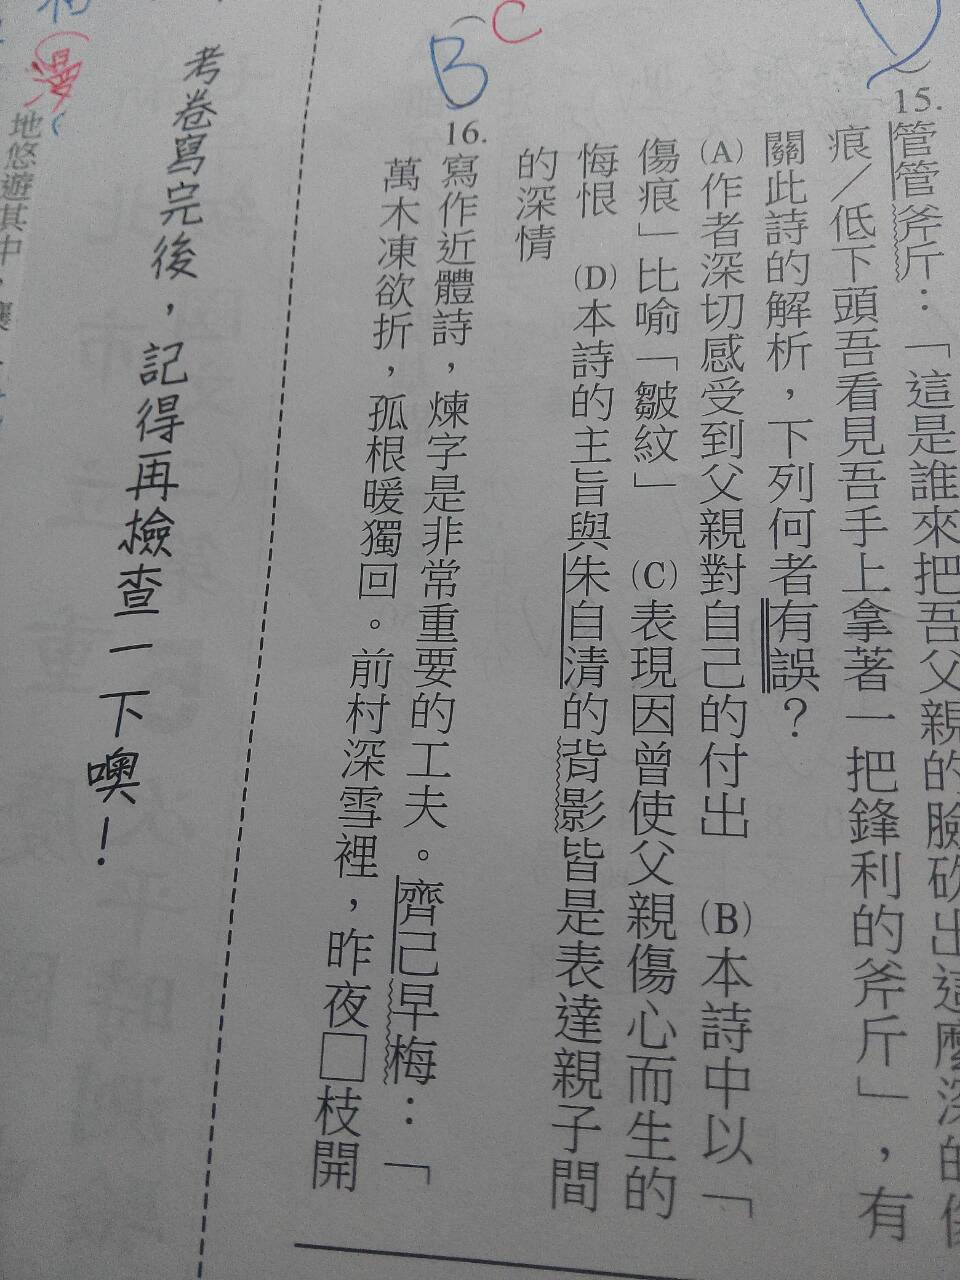 15.管管斧斤：「這是誰來把吾父親的臉砍出這麼深的傷
痕／低下頭吾看見吾手上拿著一把鋒利的斧斤」，有
關此詩的解析，下列何者有誤？
(A)作者深切感受到父親對自己的付出 (B)本詩中以「
傷痕」比喻「皺紋」 (C)表現因曾使父親傷心而生的
悔恨 (D)本詩的主旨與朱自清的背影皆是表達親子間
的深情
(B C
16.寫作近體詩，煉字是非常重要的工夫。齊己早梅：「
萬木凍欲折，孤根暖獨回。前村深雪裡，昨夜□枝開
考卷寫完後，記得再檢查一下噢！
(漫(
地悠遊其中，